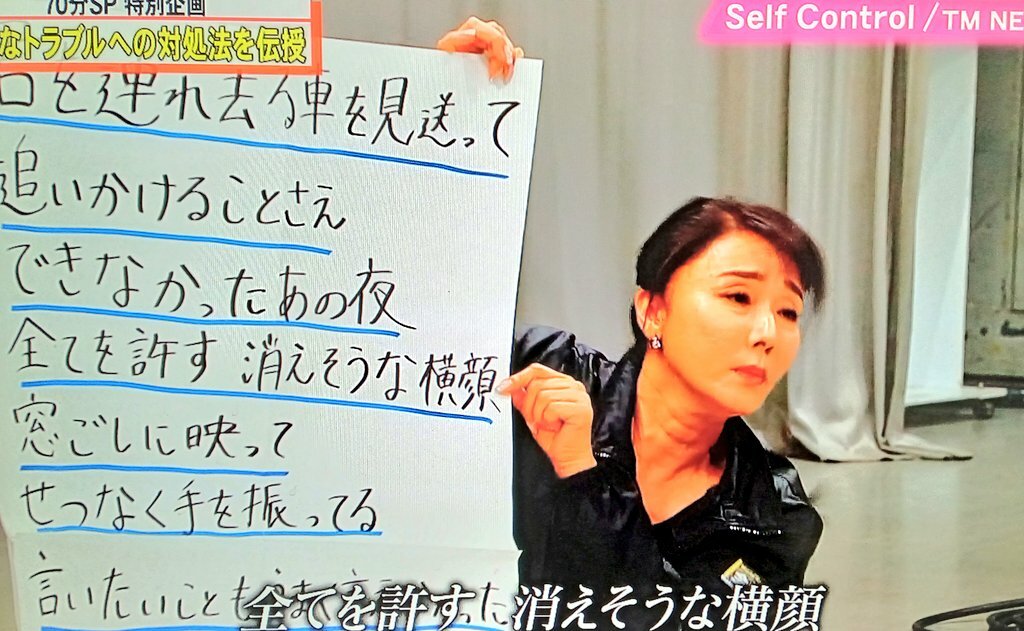 70分SP 特別企画
なトラブルへの対処法を伝授
Self Control/TM NE
を連れ去る車を見送って
追いかけることさえ
できなかったあの夜
全てを許す 消えそうな横顔
窓ごしに映って
せつなく手を振ってる
言いたいことも
全てを許す 消えそうな横顔